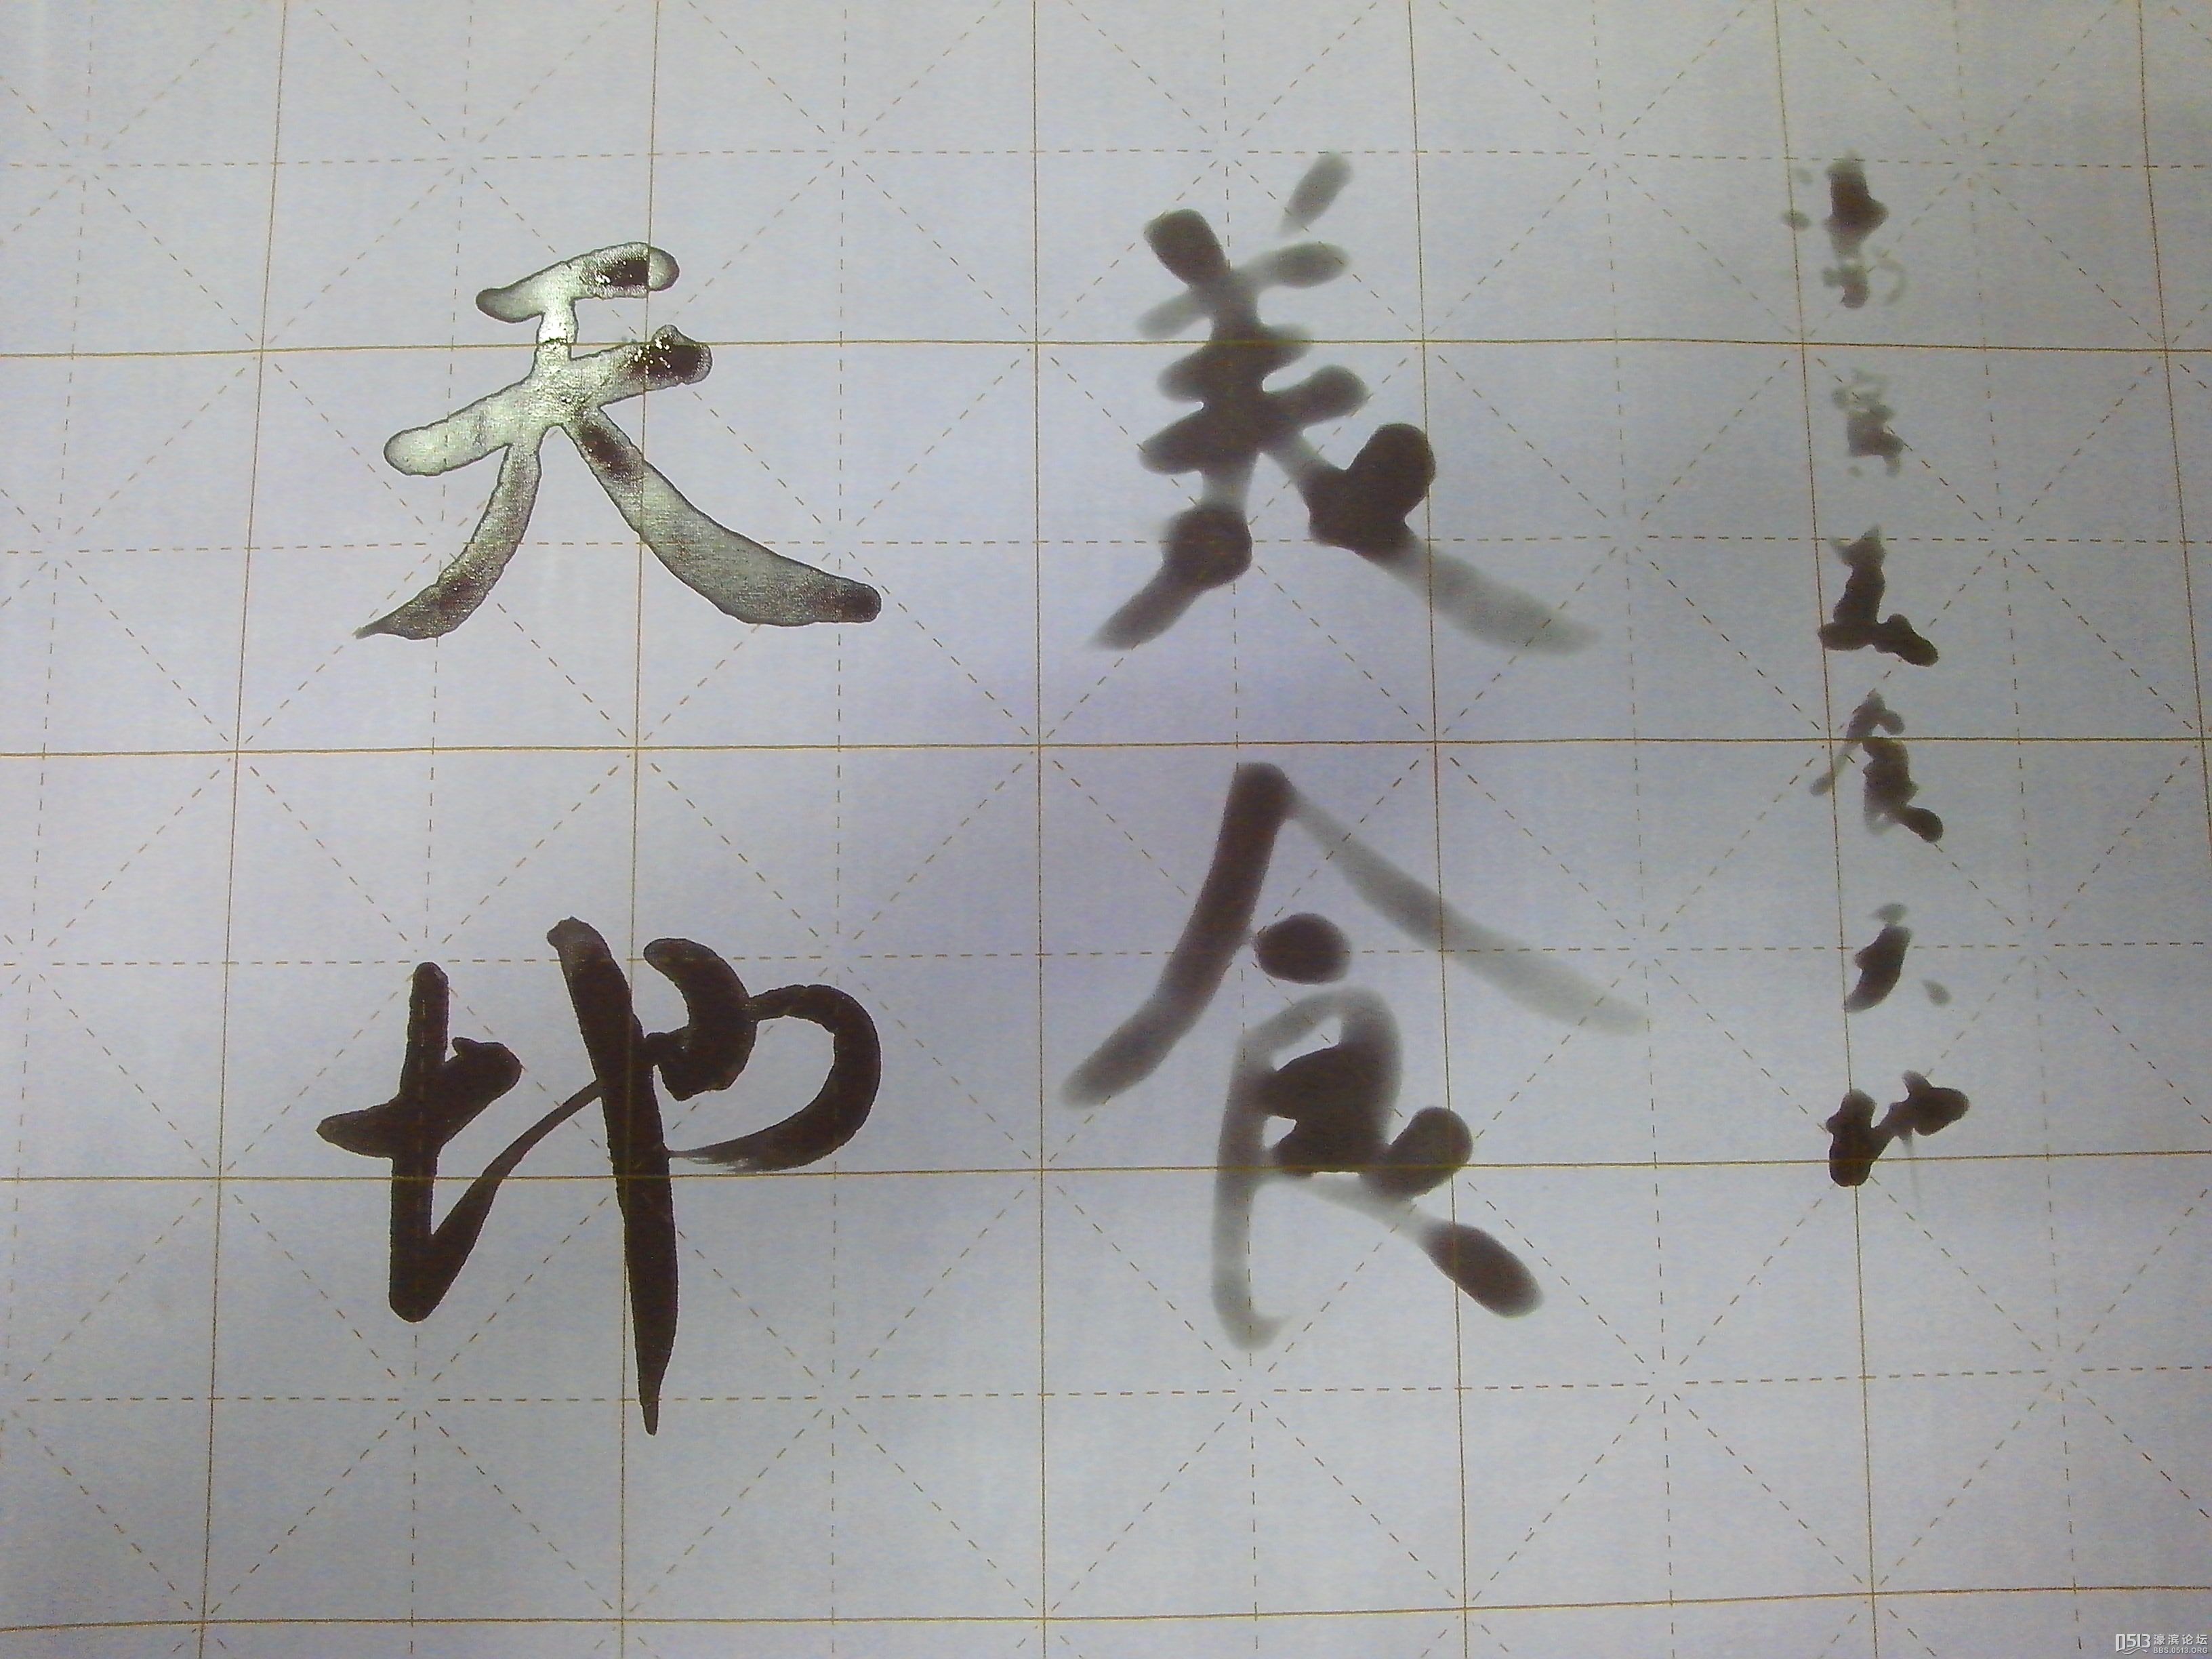 濠滨美食天地
美食
天地
0513 濠滨论坛
BBS.0513.ORG